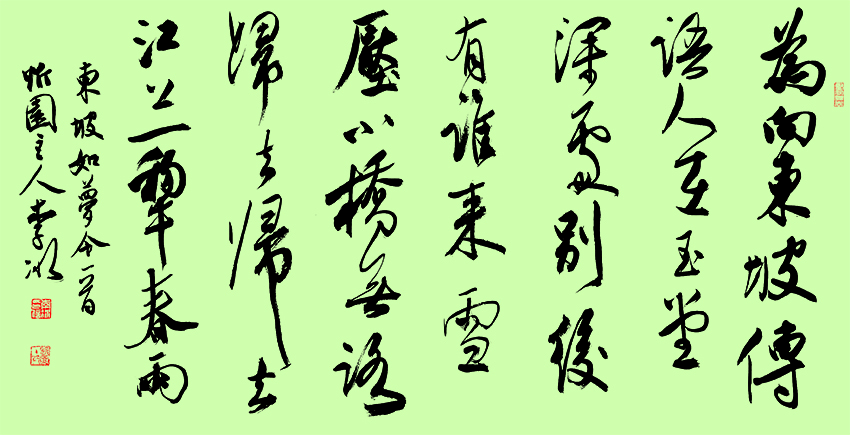 為向東坡傳
語人在玉堂
深處別後
有誰來雪
壓小橋無路
歸去歸去
江上一犁春雨
東坡如夢令一首
園主人李